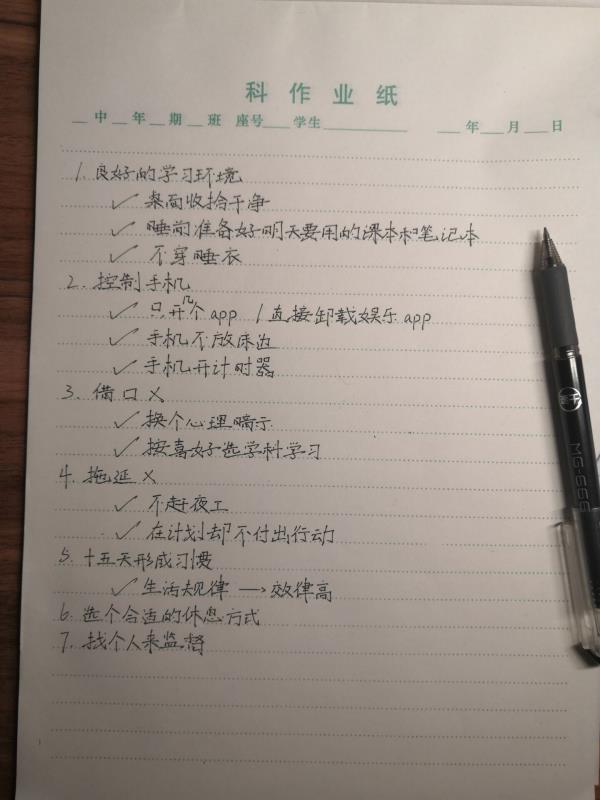 科作业纸
中 年 期 班 座号 学生 年 月 日
1. 良好的学习环境
✓ 桌面收拾干净
✓ 睡前准备好明天要用的课本和笔记本
✓ 不穿睡衣
2. 控制手机
✓ 只开几个app / 直接卸载娱乐app
✓ 手机不放床边
✓ 手机开计时器
3. 借口 ×
✓ 换个心理暗示
✓ 按喜好选学科学习
4. 拖延 ×
✓ 不赶夜工
✓ 在计划却不付出行动
5. 十五天形成习惯
✓ 生活规律 → 效律高
6. 选个合适的休息方式
7. 找个人来监督
MG-666